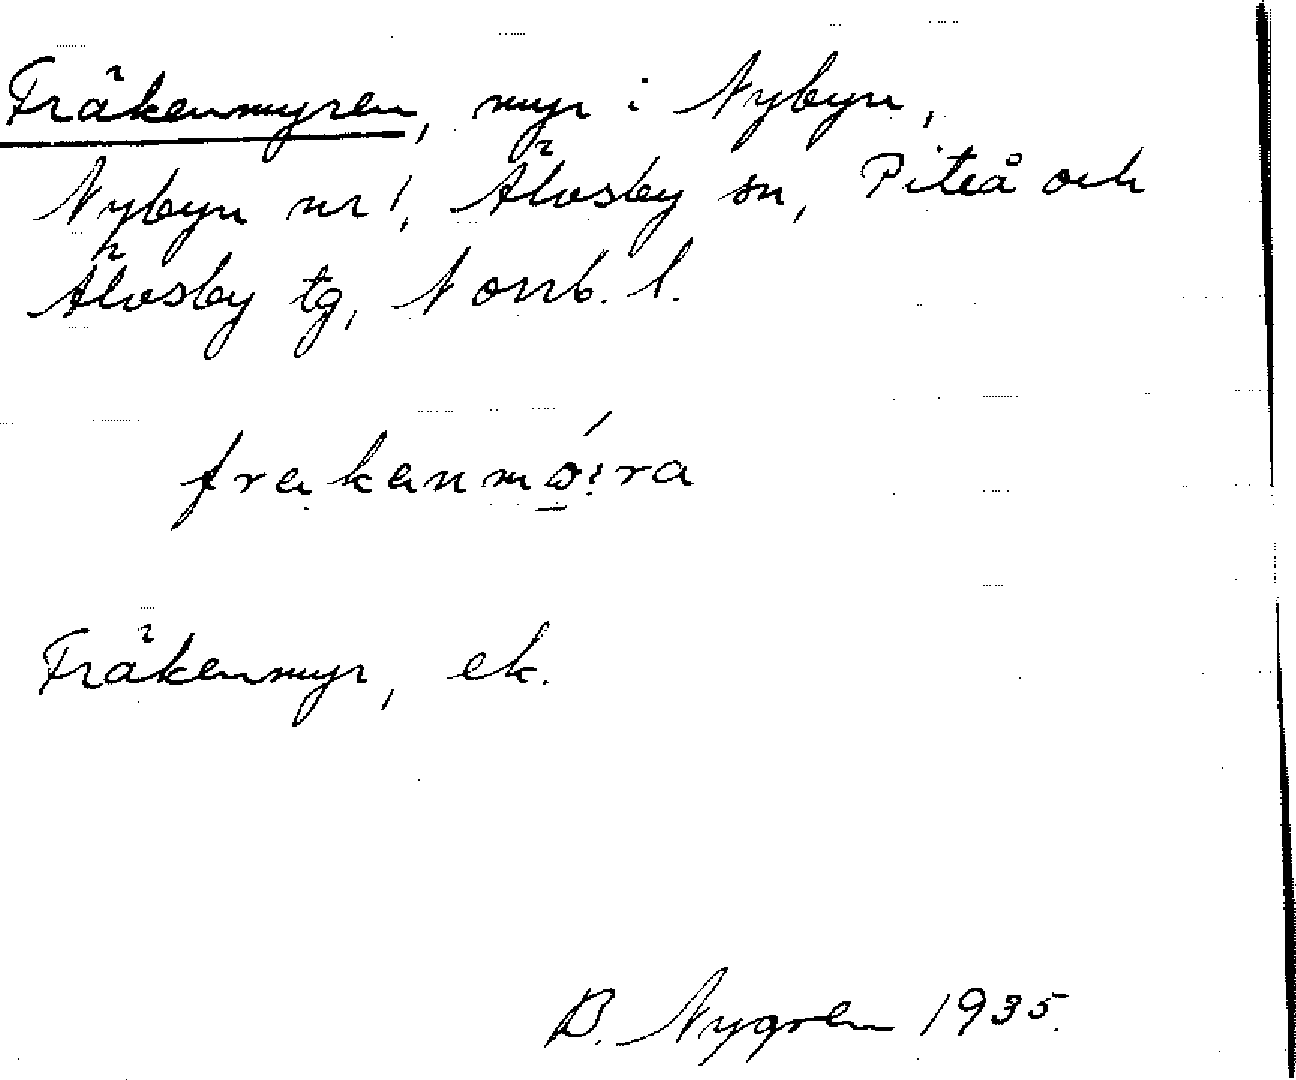 Fräkenmyren, myr i Nybyn,
Nybyn nr 1, Älvsby sn, Piteå och
Älvsby tg, Norrb. l.
frakanmo̲íra
Fräkenmyr, ek.
B. Nygren 1935.